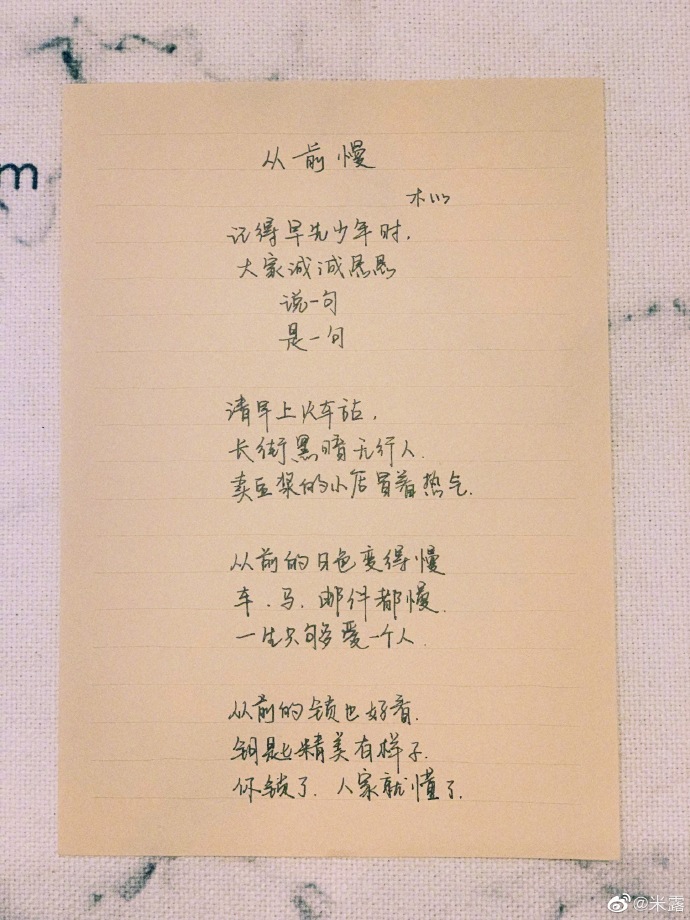 m
从前慢
木心
记得早先少年时,
大家诚诚恳恳
说一句
是一句
清早上火车站,
长街黑暗无行人.
卖豆浆的小店冒着热气.
从前的日色变得慢
车、马、邮件都慢.
一生只够爱一个人.
从前的锁也好看.
钥匙精美有样子.
你锁了.人家就懂了.
@米露